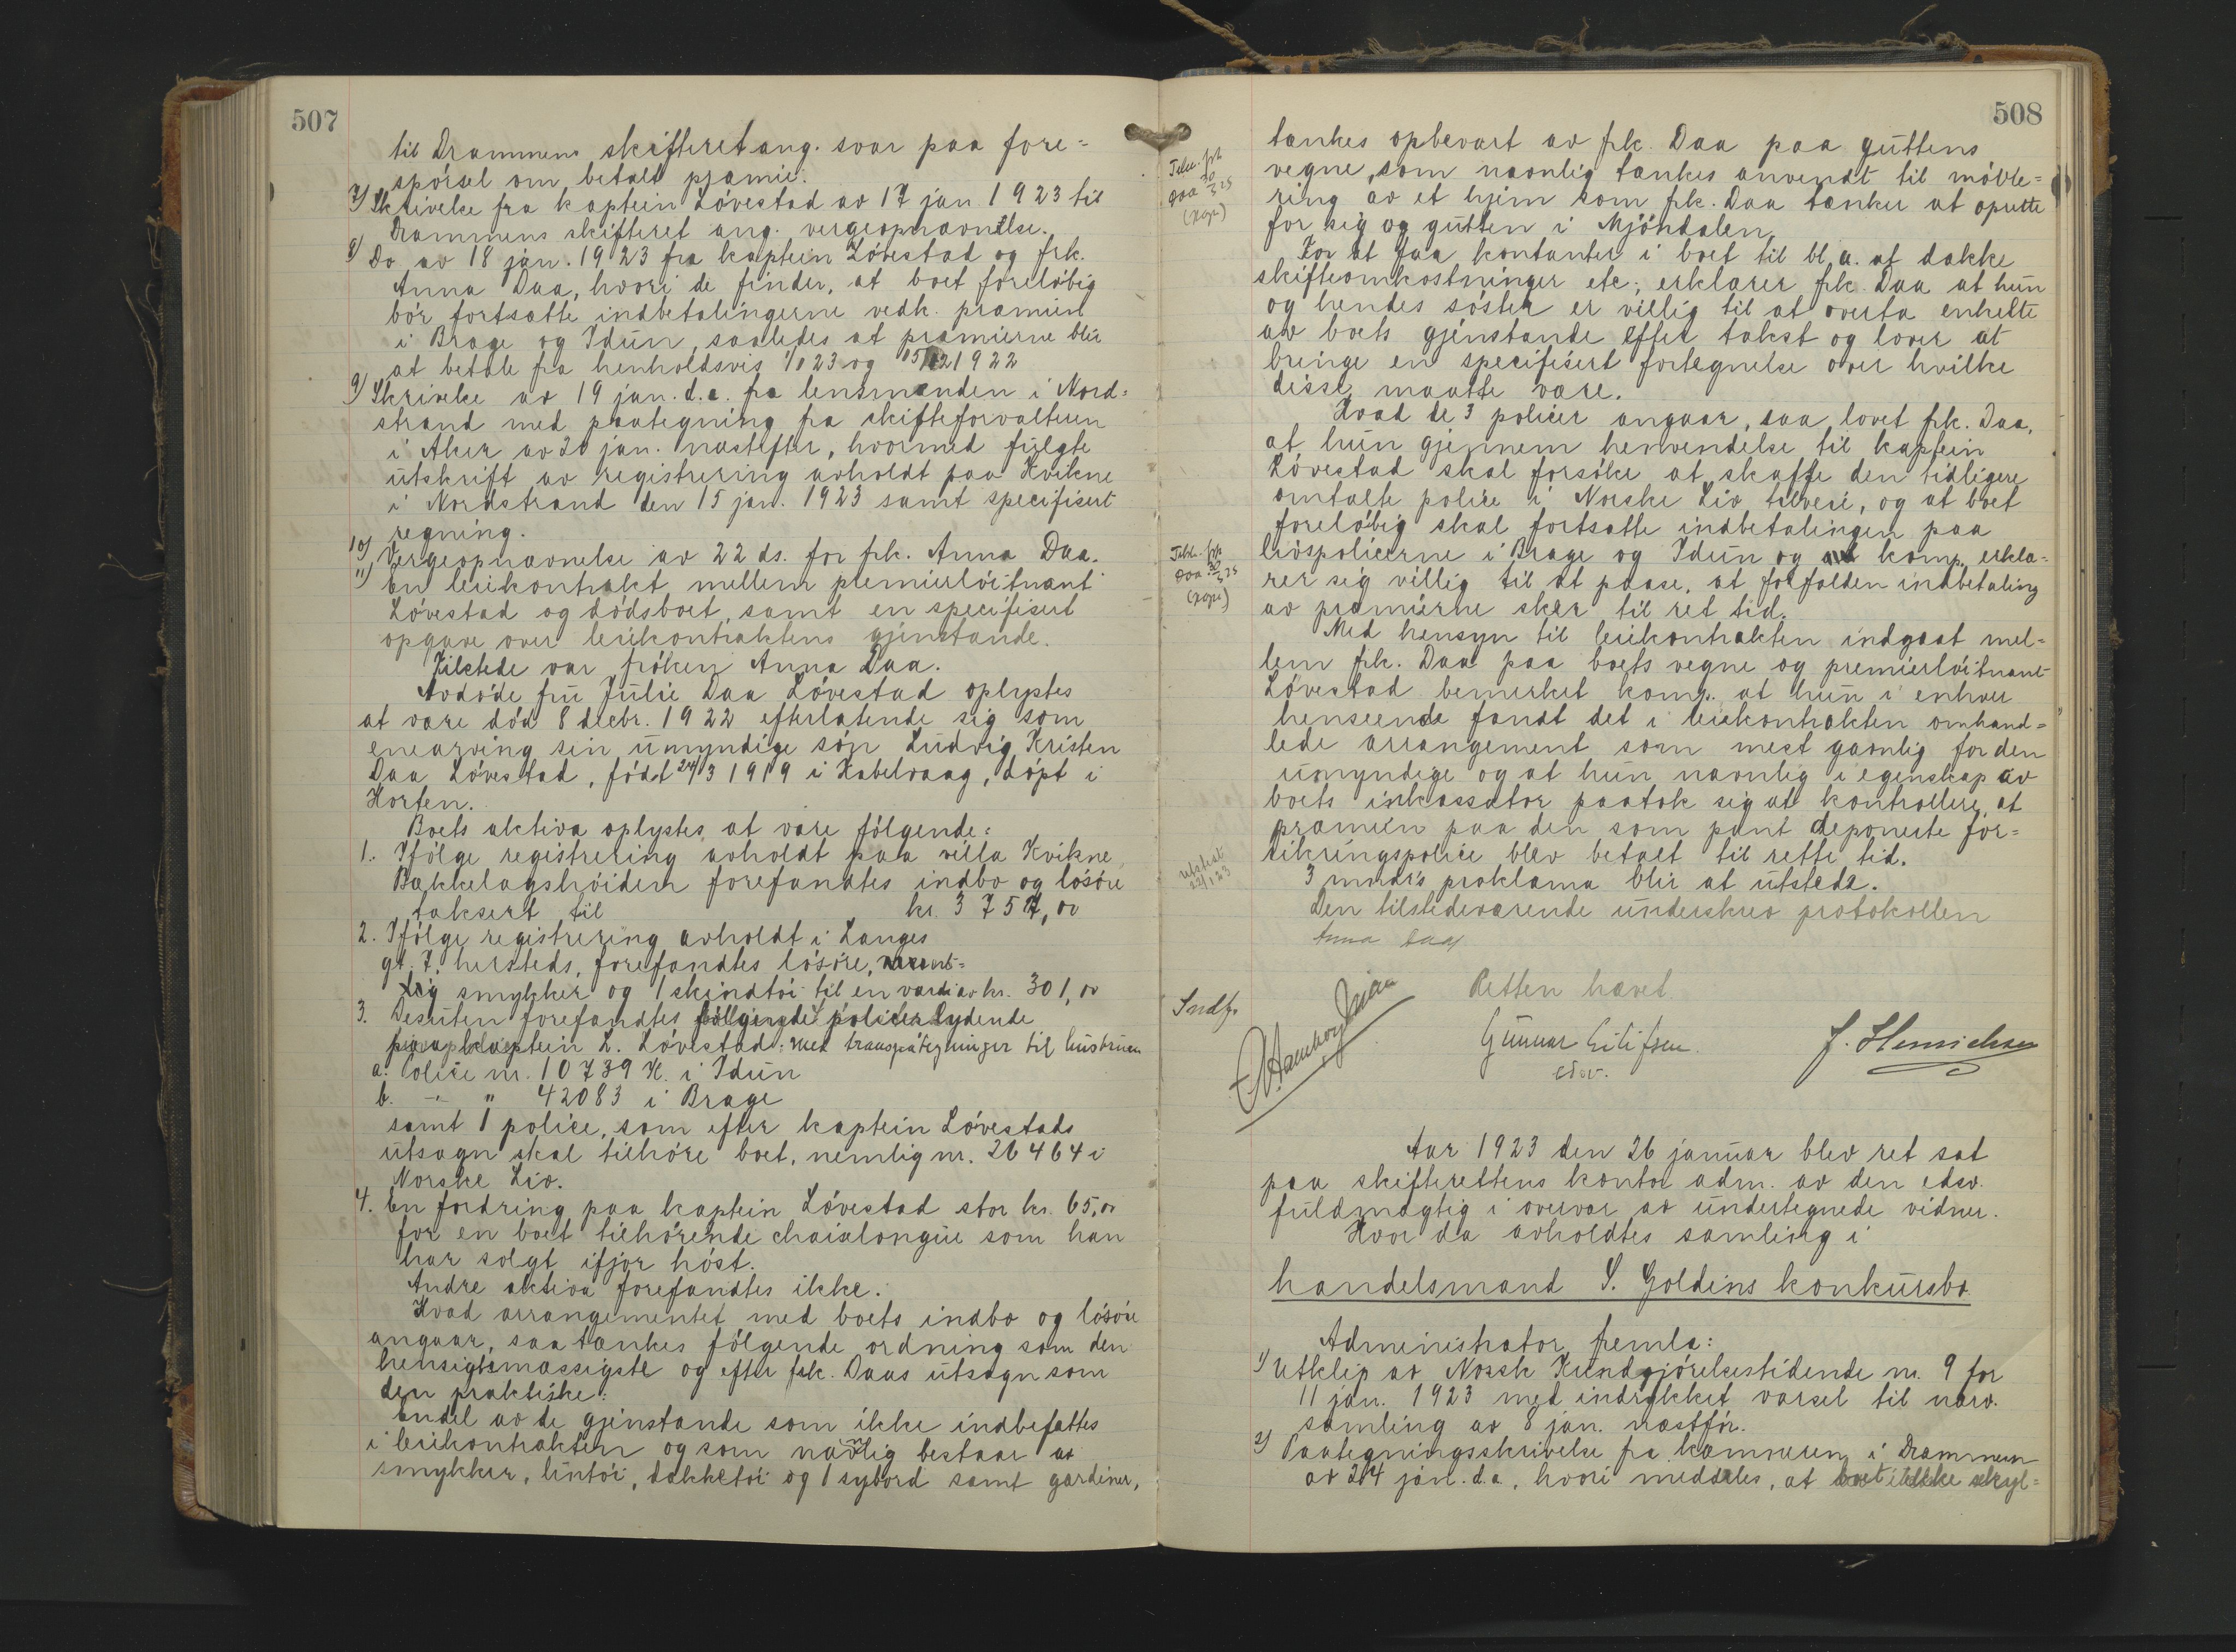 507
til Drammens skifteret ang. svar paa fore=
spørsel om betalt præmie.
7) Skrivelse fra kaptein Løvestad av 17 jan 1923 til
Drammens skifteret ang. vergeopnævnelse.
8) Do av 18 jan. 1923 fra kaptein Løvestad og frk.
Anna Daa, hvori de finder, at boet foreløbig
bør fortsætte indbetalingerne vedk. præmien
i Brage og Idun, saaledes at præmierne blir
at betale fra henholdsvis 1/1 023 og 15/12 1922
9) Skrivelse av 19 jan. d.a. fra lensmanden i Nord=
strand med paategning fra skifteforvalteren
i Aker av 20 jan. næstefter, hvormed fulgte
utskrift av registrering avholdt paa Kvikne
i Nordstrand den 15 jan. 1923 samt specifisert
regning.
10) Vergeopnævnelse av 22 ds. for frk. Anna Daa.
11) En leiekontrakt mellem premierløitnant
Løvestad og dødsboet, samt en specifisert
opgave over leiekontraktens gjenstande.
Tilstede var frøken Anna Daa.
Avdøde fru Julie Daa Løvestad oplystes
at være død 8 decbr. 1922 efterlatende sig som
enearving sin umyndige søn Ludvig Kristen
Daa Løvestad, født 24/3 1919 i Kabelvaag, døpt i
Horten.
Boets aktiva oplystes at være følgende:
1. Ifølge registrering avholdt paa villa Kvikne
Bækkelagshøiden forefandtes indbo og løsøre
taksert til kr. 3757,00
2. Ifølge registrering avholdt i Langes
gt. 7. hersteds, forefandtes løsøre, væsent=
lig smykker og 1 skindtøi til en værdi av kr. 301,00
3. Desuten forefandtes følgende policer lydende
paa kaptein L. Løvestad: med transpåtegninger til hustruen
a. Police nr. 10739 H. i Idun
b. -"- " 42083 i Brage
samt 1 police, som efter kaptein Løvestads
utsagn skal tilhøre boet, nemlig nr. 26464 i
Norske Liv.
4. En fordring paa kaptein Løvestad stor kr. 65,00
for en boet tilhørende chaiselongue som han
har solgt ifjor høst.
Andre aktiva forefandtes ikke.
Hvad arrangementet med boets indbo og løsøre
angaar, saa tænkes følgende ordning som den
hensigtsmæssigste og efter frk. Daas utsagn som
den praktiske:
Endel av de gjenstande som ikke indbefattes
i leiekontrakten og som navnlig bestaar av
smykker, lintøi, dækketøi og 1 sybord samt gardiner,
508
tænkes opbevart av frk. Daa paa guttens
vegne, som navnlig tænkes anvendt til møble=
ring av et hjem som frk. Daa tænker at oprette
for sig og gutten i Mjøndalen.
For at faa kontanter i boet til bl.a. at dække
skifteomkostninger etc., erklærer frk. Daa at hun
og hendes søster er villig til at overta enkelte
av boets gjenstande efter takst og lover at
bringe en specifisert fortegnelse over hvilke
disse maatte være.
Hvad de 3 policer angaar, saa lovet frk. Daa,
at hun gjennem henvendelse til kaptein
Løvestad skal forsøke at skaffe den tidligere
omtalte police i Norske Liv tilveie, og at boet
foreløbig skal fortsætte indbetalingen paa
livspolicerne i Brage og Idun og komp. erklæ=
rer sig villig til at paase, at forfalden indbetaling
av præmierne skær til ret tid.
Med hensyn til leiekontrakten indgaat mel=
lem frk. Daa paa boets vegne og premierløitnant
Løvestad bemerket komp. at hun i enhver
henseende fandt det i leiekontrakten omhand=
lede arrangement som mest gavnlig for den
umyndige og at hun navnlig i egenskap av
boets inkassator paatok sig at kontrollere, at
præmien paa den som pant deponerte for=
sikringspolice blev betalt til rette tid.
utstedt
22/1 23
3 mndr's proklama blir at utstede.
Den tilstedeværende underskrev protokollen
Anna Daa
Retten hævet.
Indf.
Gunnar Eilifsen
edsv.
J. Henrichsen
Aar 1923 den 26 januar blev ret sat
paa skifterettens kontor adm. av den edsv.
fuldmægtig i overvær av undertegnede vidner.
Hvor da avholdtes samling i
handelsmand S. Goldins konkursbo
Administrator fremla:
1) Utklip av Norsk Kundgjørelsestidende nr. 9 for
11 jan. 1923 med indrykket varsel til nærv.
samling av 8 jan. næstfør.
2) Paategningsskrivelse fra kæmneren i Drammen
av 24 jan. d.a., hvori meddeles, at boet ikke skyl=